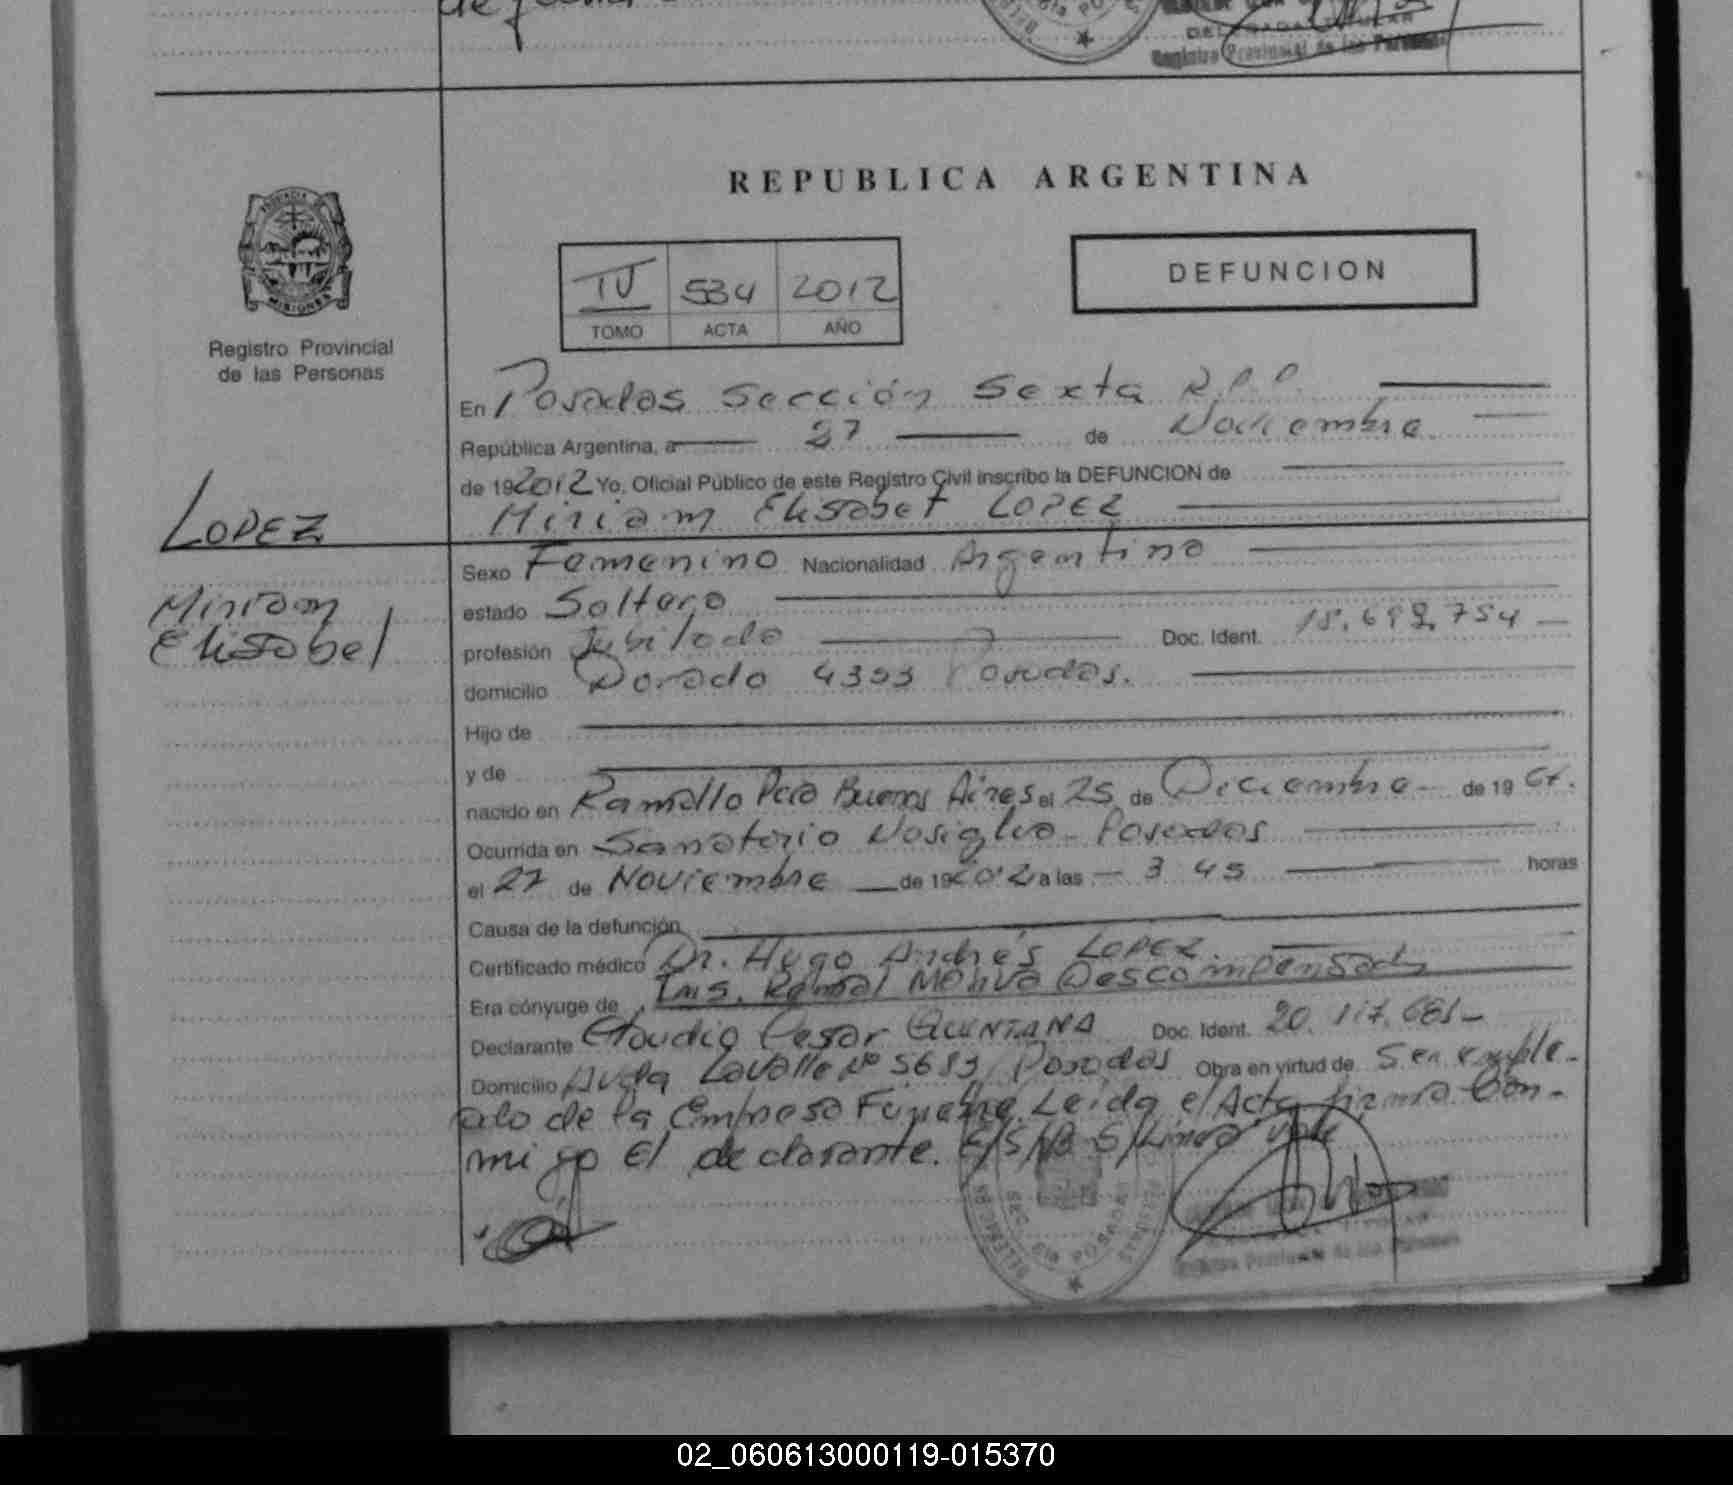 de
DEL
Registro Provincial de las Personas
REPUBLICA ARGENTINA
DEFUNCION
IV 534 2012
TOMO ACTA AÑO
PROVINCIA DE
MISIONES
Registro Provincial
de las Personas
LOPEZ
Miriam
Elisabet
En Posadas Sección Sexta R.P.P.
República Argentina, a 27 de Noviembre
de 192012 Yo, Oficial Público de este Registro Civil inscribo la DEFUNCION de
Miriam Elisabet LOPEZ
Sexo Femenino Nacionalidad Argentina
estado Soltera
profesión Jubilada Doc. Ident. 18.692.754
domicilio Dorado 4353 Posadas.
Hijo de
y de
nacido en Ramallo Pcia Buenos Aires el 25 de Diciembre de 19 67.
Ocurrida en Sanatorio Nosiglia - Posadas
el 27 de Noviembre de 192012 a las 3 45 horas
Causa de la defunción
Certificado médico Dr. Hugo Andrés LOPEZ
Era cónyuge de Ins. Renal Descompensada
Declarante Claudio Cesar QUINTANA Doc. Ident. 20.117.681
Domicilio Avda Lavalle Nº 5683 Posadas Obra en virtud de Ser emple-
ado de la Empresa Funebre. Leida el Acta firma Con-
migo El declarante. E/S/Nº S/Linea vale
POSADAS
Registro Provincial de las Personas
02_060613000119-015370